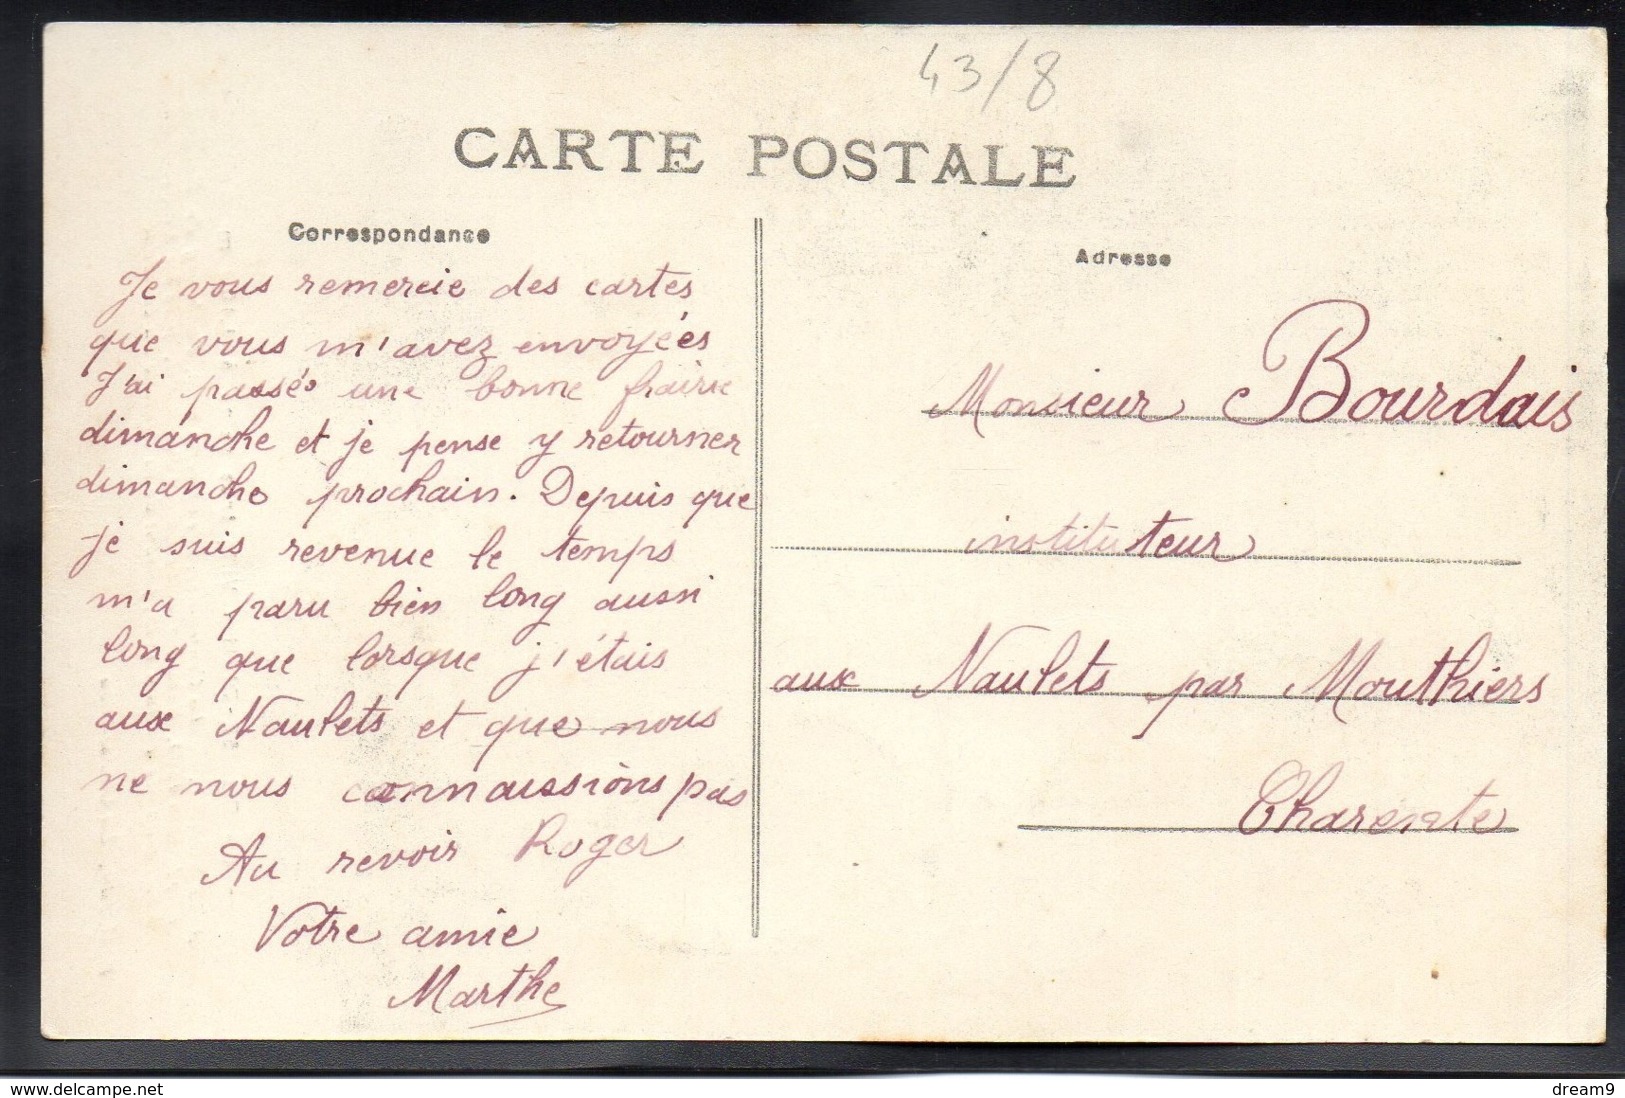 43/8
CARTE POSTALE
Correspondance
Je vous remercie des cartes
que vous m'avez envoyées
J'ai passés une bonne frairie
dimanche et je pense y retourner
dimanche prochain. Depuis que
je suis revenue le temps
m'a paru bien long aussi
long que lorsque j'étais
aux Naulets et que nous
ne nous connaissions pas
Au revoir Roger
Votre amie
Marthe
Adresse
Monsieur Bourdais
instituteur
aux Naulets par Mouthiers
Charente
www.delcampe.net
dream9